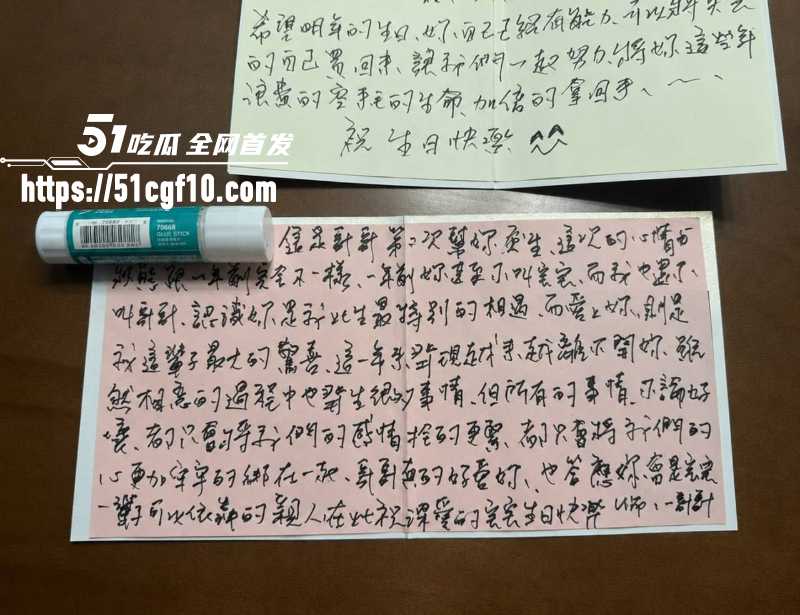 希望明年的生日、妳自己已經有能力、可以將失去
的自己買回來、讓我們一起努力、將妳這些年
浪費的空耗的生命、加倍的拿回來、~、
祝 生日快樂 ^^
51吃瓜 全网首发
https://51cgf10.com
70668
GLUE STICK
這是哥哥第2次幫妳慶生、這次的心情與
狀態跟一年前完全不一樣、一年前妳甚至不叫寶寶、而我也還不
叫哥哥、認識妳、是我此生最特別的相遇、而愛上妳、則是
我這輩子最大的驚喜、這一年來、發現越來越離不開妳、雖
然相戀的過程中也發生很多事情、但所有的事情、不論好
壞、都只會將我們的感情拴的更緊、都只會將我們的
心更加牢牢的綁在一起、哥哥真的好愛妳、也答應妳、會是寶寶
一輩子可以依靠的親人在此祝深愛的寶寶生日快樂 一哥哥